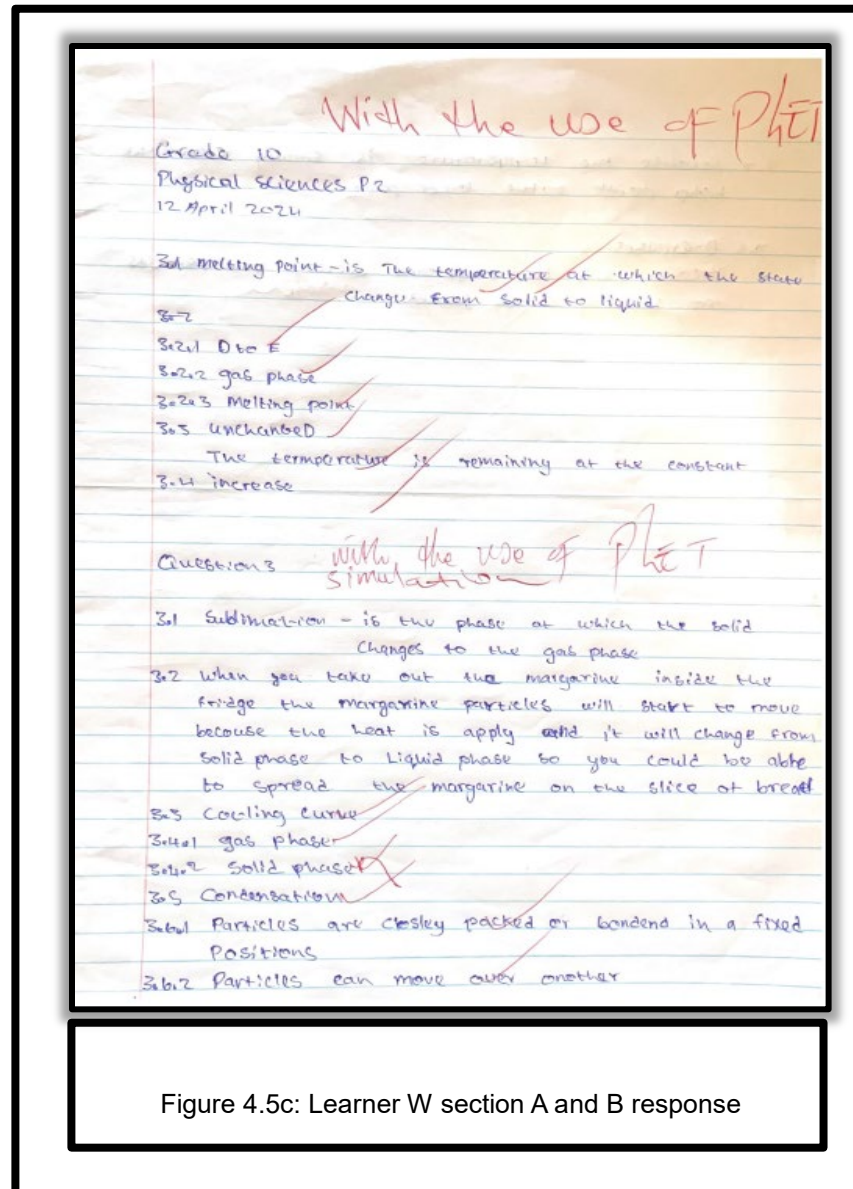 With the use of PhET
Grade 10
Physical sciences P2
12 April 2024
3.1 melting point - is The temperature at which the state
change from solid to liquid
3.2
3.2.1 D to E
3.2.2 gas phase
3.2.3 Melting point
3.3 unchangeD
The termperature is remaining at the constant
3.4 increase
Question 3
with the use of PhET
simulation
3.1 Sublimation - is the phase at which the solid
Changes to the gas phase
3.2 when you take out the margarine inside the
fridge the margarine particles will start to move
becouse the heat is apply and it will change from
solid phase to Liquid phase so you could be able
to spread the margarine on the slice of bread
3.3 Cooling curve
3.4.1 gas phase
3.4.2 Solid phase
3.5 Condensation
3.6.1 Particles are closley packed or bondend in a fixed
Positions
3.6.2 Particles can move over another
Figure 4.5c: Learner W section A and B response